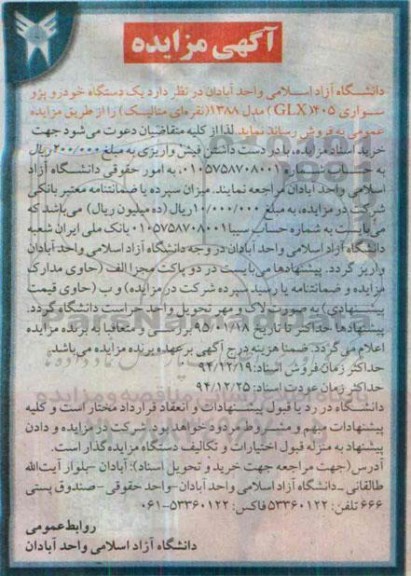 آگهی مزایده
دانشگاه آزاد اسلامی واحد آبادان در نظر دارد یک دستگاه خودرو پژو
سواری ۴۰۵ (GLX) مدل ۱۳۸۸ (نقره‌ای متالیک) را از طریق مزایده
عمومی به فروش رساند نماید لذا از کلیه متقاضیان دعوت می‌شود جهت
خرید اسناد مزایده، با در دست داشتن فیش واریزی به مبلغ ۲۰۰/۰۰۰ ریال
به حساب شماره ۰۱۰۵۷۵۸۷۰۸۰۰۱، به امور حقوقی دانشگاه آزاد
اسلامی واحد آبادان مراجعه نمایند. میزان سپرده یا ضمانتنامه معتبر بانکی
شرکت در مزایده، به مبلغ ۱۰/۰۰۰/۰۰۰ ریال (ده میلیون ریال) می‌باشد که
می‌بایست به شماره حساب سیبا ۰۱۰۵۷۵۸۷۰۸۰۰۱ بانک ملی ایران شعبه
دانشگاه آزاد اسلامی واحد آبادان در وجه دانشگاه آزاد اسلامی واحد آبادان
واریز گردد. پیشنهادها می‌بایست در دو پاکت مجزا الف (حاوی مدارک
مزایده و ضمانتنامه یا رسید سپرده شرکت در مزایده) و ب (حاوی قیمت
پیشنهادی) به صورت لاک و مهر تحویل واحد حراست دانشگاه گردد.
پیشنهادها حداکثر تا تاریخ ۹۵/۰۱/۱۸ بررسی و متعاقبا به برنده مزایده
اعلام می‌گردد. ضمنا هزینه درج آگهی بر عهده برنده مزایده می‌باشد.
حداکثر زمان فروش اسناد: ۹۴/۱۲/۱۹
حداکثر زمان عودت اسناد: ۹۴/۱۲/۲۵
دانشگاه در رد یا قبول پیشنهادات و انعقاد قرارداد مختار است و کلیه
پیشنهادات مبهم و مشروط مردود خواهد بود. شرکت در مزایده و دادن
پیشنهاد به منزله قبول اختیارات و تکالیف دستگاه مزایده گذار است.
آدرس (جهت مراجعه جهت خرید و تحویل اسناد): آبادان - بلوار آیت‌الله
طالقانی - دانشگاه آزاد اسلامی واحد آبادان - واحد حقوقی - صندوق پستی
۶۶۶ تلفن: ۵۳۳۶۰۱۲۲ فاکس: ۵۳۳۶۰۱۲۲-۰۶۱
روابط عمومی
دانشگاه آزاد اسلامی واحد آبادان